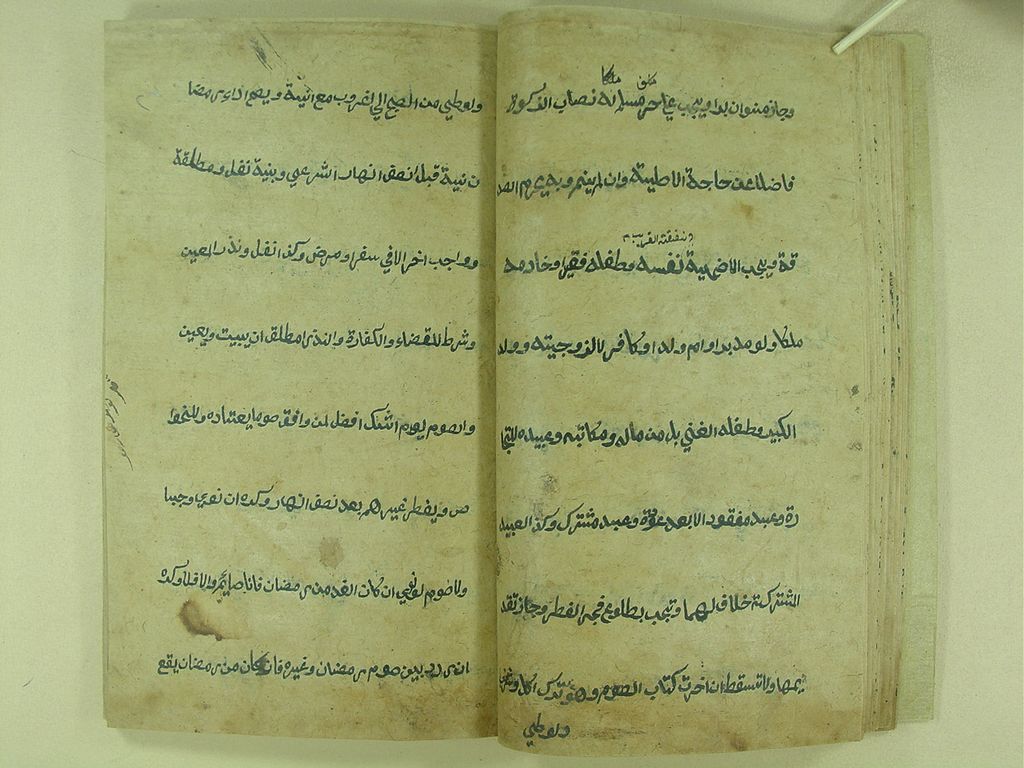 مكلف مالكا
وجاز منوان برا ويجب على حر مسلم له نصاب الزكوة
فاضلا عن حاجة الاصلية وان لم ينم وبه يحرم الصد
ونفقته القريب
قة ويجب الاضحية لنفسه وطفله فقيرا وخادمه
ملكا ولو مدبرا او ام ولد او كافر لا لزوجيته وولد
الكبير وطفله الغني بل من ماله ومكاتبه وعبيده للتجا
رة وعبد مفقود الا بعد عوده وعبد مشترك وكذا العبيد
المشتركة خلاف لهما وتجب بطلوع فجر الفطر وجاز تقد
يمها ولا تسقط ان اخرت كتاب الصوم وهو ترك اكل وشرب
ووطئ
ووطئ من الصبح الى الغروب مع النية ويصح اداء رمضا
ن بنية قبل نصف النهار الشرعي وبنية نفل ومطلقة
وواجب اخر الا في سفر او مرض وكذا نفل ونذر المعين
وشرط للقضاء والكفارة والنذر المطلق ان يبيت ويعين
والصوم يوم الشك افضل لمن وافق صوما يعتاده وللخوا
ص ويفطر غيرهم بعد نصف النهار وكره ان نوى وجبا
ولا صوم لو نوى ان كان الغد من رمضان فانا صايم والا فلا وكره
ان ردد بين صوم رمضان وغيره فان كان من رمضان يقع